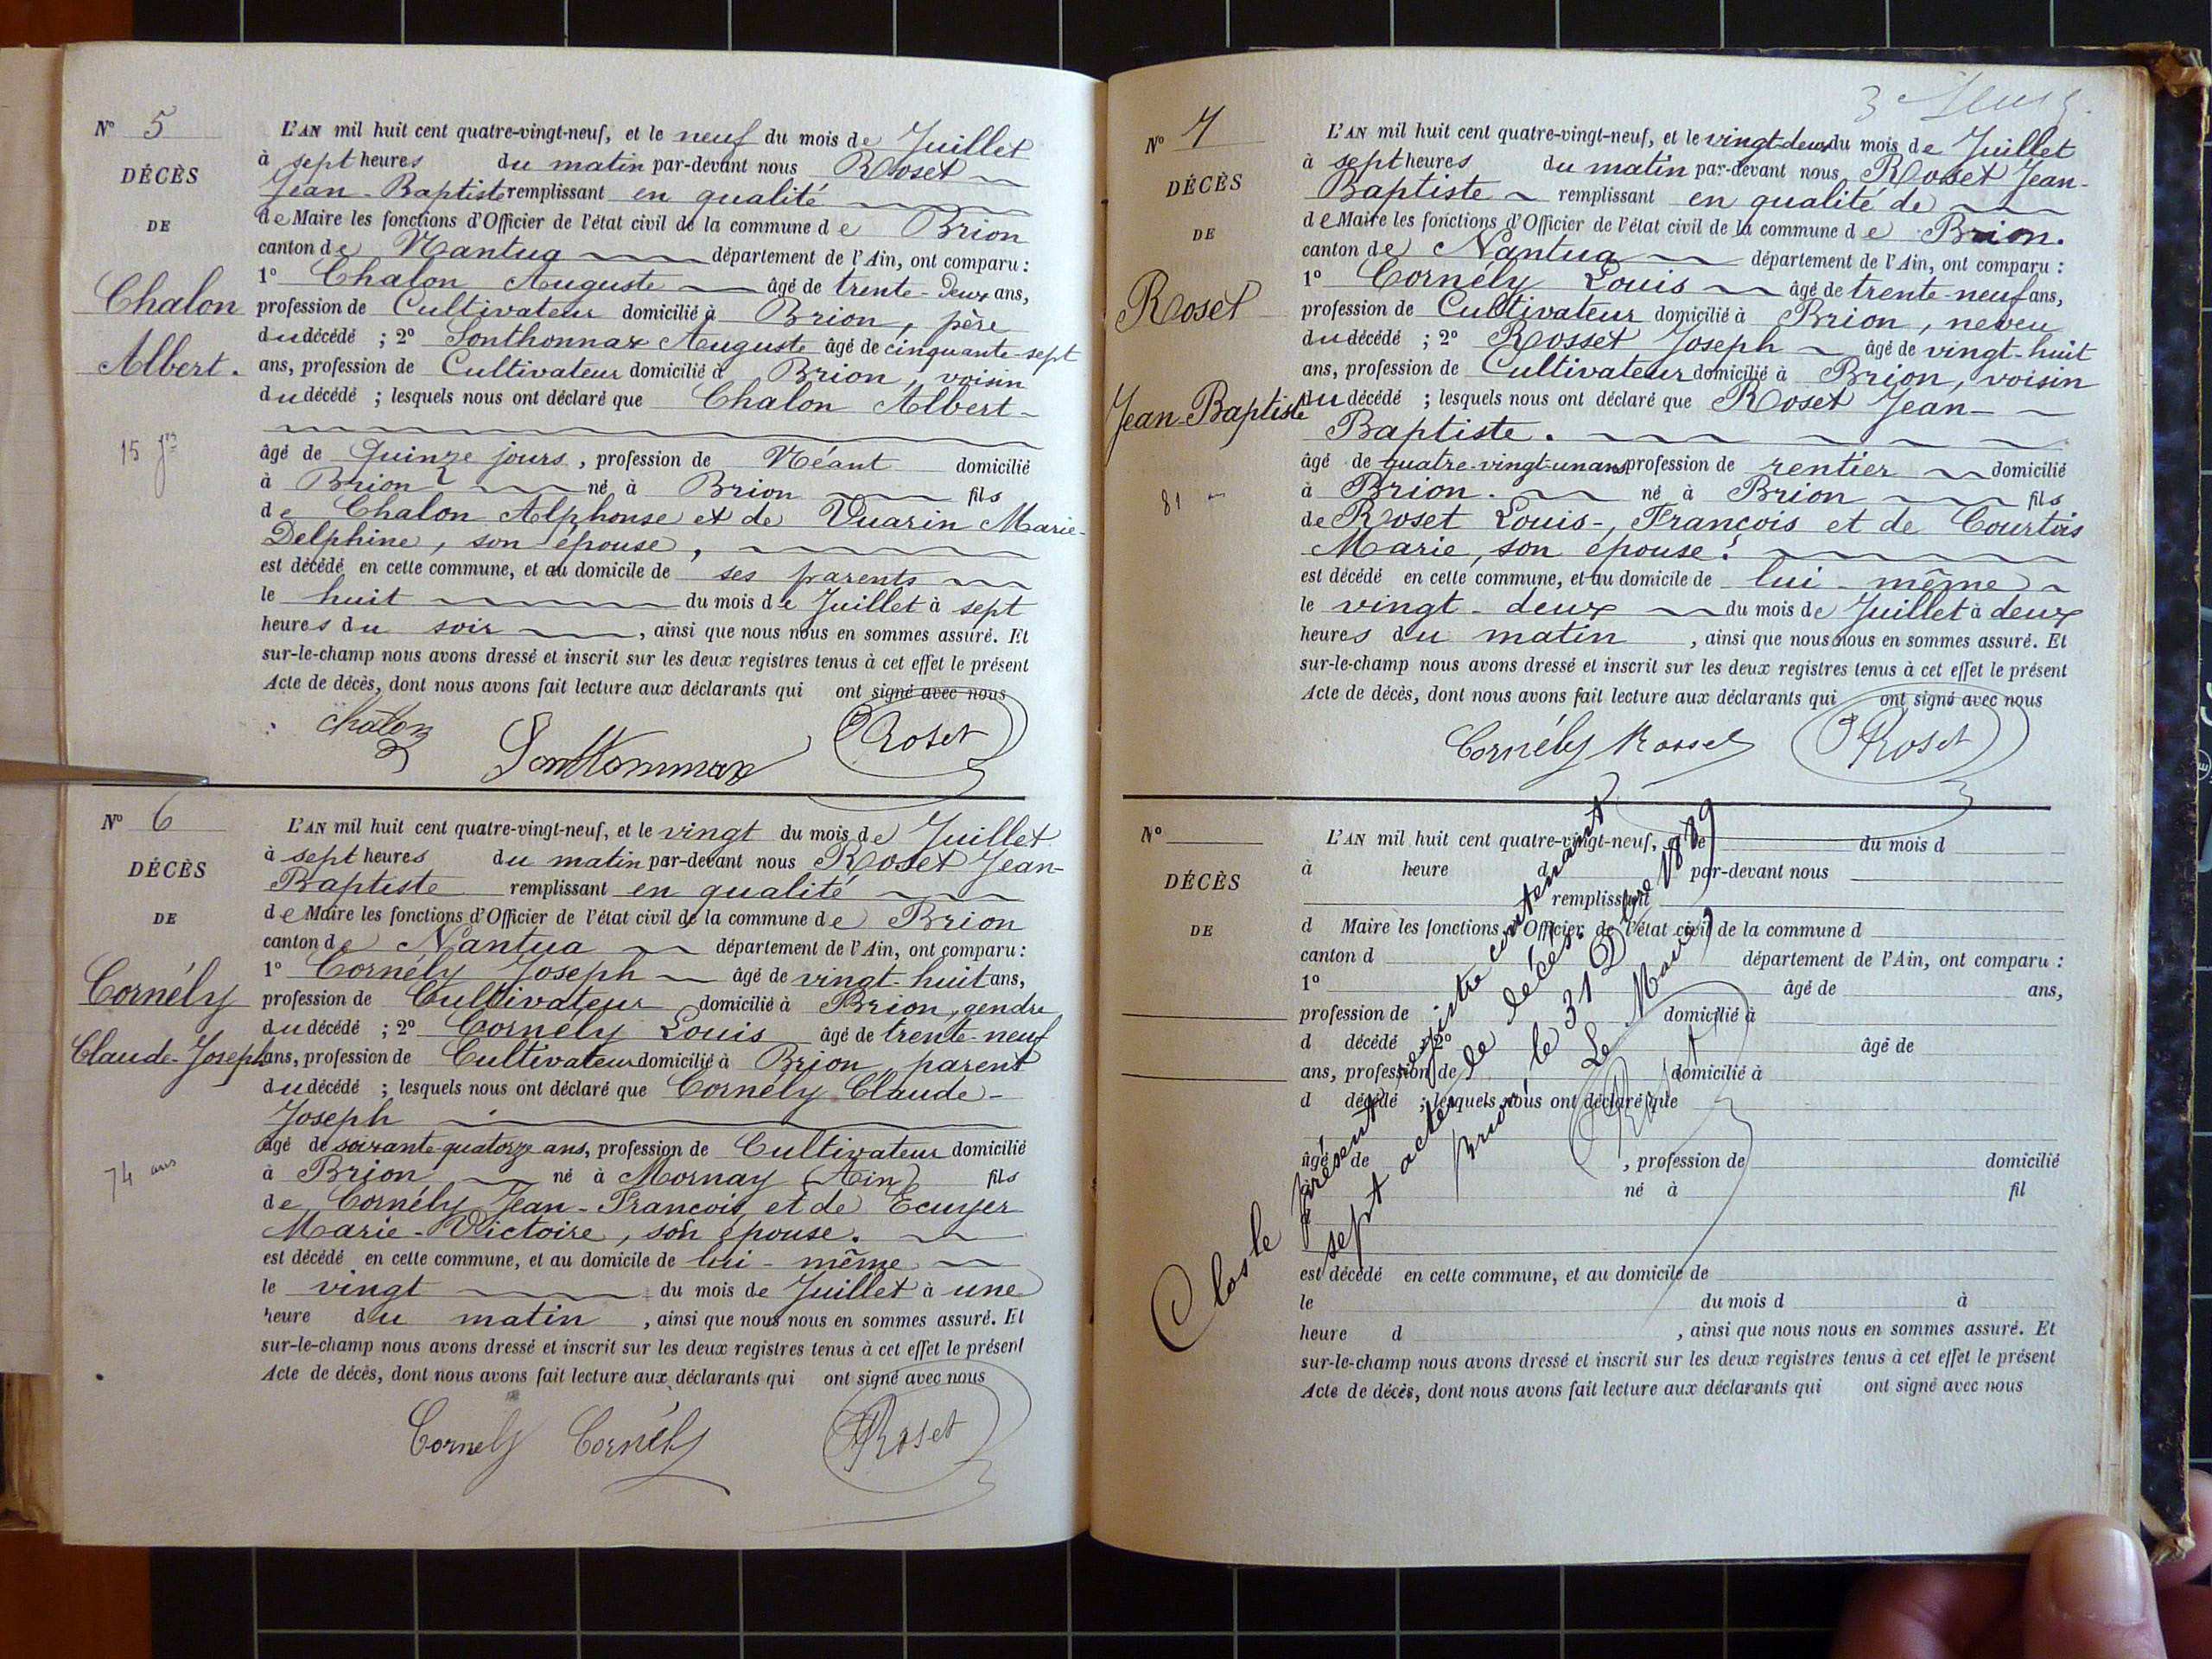 N° 5
DÉCÈS
DE
Chalon
Albert.
15 jrs
L'AN mil huit cent quatre-vingt-neuf, et le neuf du mois de Juillet
à sept heures du matin par-devant nous Roset
Jean-Baptiste remplissant en qualité
de Maire les fonctions d'Officier de l'état civil de la commune de Brion
canton de Nantua département de l'Ain, ont comparu :
1° Chalon Auguste âgé de trente-deux ans,
profession de Cultivateur domicilié à Brion, père
du décédé ; 2° Sonthonnax Auguste âgé de cinquante-sept
ans, profession de Cultivateur domicilié à Brion, voisin
du décédé ; lesquels nous ont déclaré que Chalon Albert-
âgé de Quinze jours, profession de Néant domicilié
à Brion né à Brion fils
de Chalon Alphonse et de Vuarin Marie-
Delphine, son épouse,
est décédé en cette commune, et au domicile de ses parents
le huit du mois de Juillet à sept
heures du soir, ainsi que nous nous en sommes assuré. Et
sur-le-champ nous avons dressé et inscrit sur les deux registres tenus à cet effet le présent
Acte de décès, dont nous avons fait lecture aux déclarants qui ont signé avec nous
Chalon Sonthonnax Roset
N° 6
DÉCÈS
DE
Cornély
Claude-Joseph
74 ans
L'AN mil huit cent quatre-vingt-neuf, et le vingt du mois de Juillet
à sept heures du matin par-devant nous Roset Jean-
Baptiste remplissant en qualité
de Maire les fonctions d'Officier de l'état civil de la commune de Brion
canton de Nantua département de l'Ain, ont comparu :
1° Cornély Joseph âgé de vingt-huit ans,
profession de Cultivateur domicilié à Brion, gendre
du décédé ; 2° Cornély Louis âgé de trente-neuf
ans, profession de Cultivateur domicilié à Brion parent
du décédé ; lesquels nous ont déclaré que Cornély Claude-
Joseph
âgé de soixante-quatorze ans, profession de Cultivateur domicilié
à Brion né à Mornay (Ain) fils
de Cornély Jean-François et de Ecuyer
Marie-Victoire, son épouse.
est décédé en cette commune, et au domicile de lui-même
le vingt du mois de Juillet à une
heure du matin, ainsi que nous nous en sommes assuré. Et
sur-le-champ nous avons dressé et inscrit sur les deux registres tenus à cet effet le présent
Acte de décès, dont nous avons fait lecture aux déclarants qui ont signé avec nous
Cornely Cornély Roset
N° 7
DÉCÈS
DE
Roset
Jean-Baptiste
81
L'AN mil huit cent quatre-vingt-neuf, et le vingt-deux du mois de Juillet
à sept heures du matin par-devant nous Roset Jean-
Baptiste remplissant en qualité de
de Maire les fonctions d'Officier de l'état civil de la commune de Brion.
canton de Nantua département de l'Ain, ont comparu :
1° Cornély Louis âgé de trente-neuf ans,
profession de Cultivateur domicilié à Brion, neveu
du décédé ; 2° Rosset Joseph âgé de vingt-huit
ans, profession de Cultivateur domicilié à Brion, voisin
du décédé ; lesquels nous ont déclaré que Roset Jean-
Baptiste.
âgé de quatre-vingt-un ans profession de rentier domicilié
à Brion. né à Brion fils
de Roset Louis-, François et de Courtois
Marie, son épouse.
est décédé en cette commune, et au domicile de lui-même
le vingt-deux du mois de Juillet à deux
heures du matin, ainsi que nous nous en sommes assuré. Et
sur-le-champ nous avons dressé et inscrit sur les deux registres tenus à cet effet le présent
Acte de décès, dont nous avons fait lecture aux déclarants qui ont signé avec nous
Cornély Rosset Roset
N°
DÉCÈS
DE
L'AN mil huit cent quatre-vingt-neuf, et le du mois d
à heure d par-devant nous
remplissant
d Maire les fonctions d'Officier de l'état civil de la commune d
canton d département de l'Ain, ont comparu :
1° âgé de ans,
profession de domicilié à
d décédé ; 2° âgé de
ans, profession de domicilié à
d décédé ; lesquels nous ont déclaré que
âgé de , profession de domicilié
à né à fil
est décédé en cette commune, et au domicile de
le du mois d à
heure d , ainsi que nous nous en sommes assuré. Et
sur-le-champ nous avons dressé et inscrit sur les deux registres tenus à cet effet le présent
Acte de décès, dont nous avons fait lecture aux déclarants qui ont signé avec nous
Clos le présent registre contenant
sept actes de décès.
Brion le 31 Xbre 1889
Le Maire,
Roset